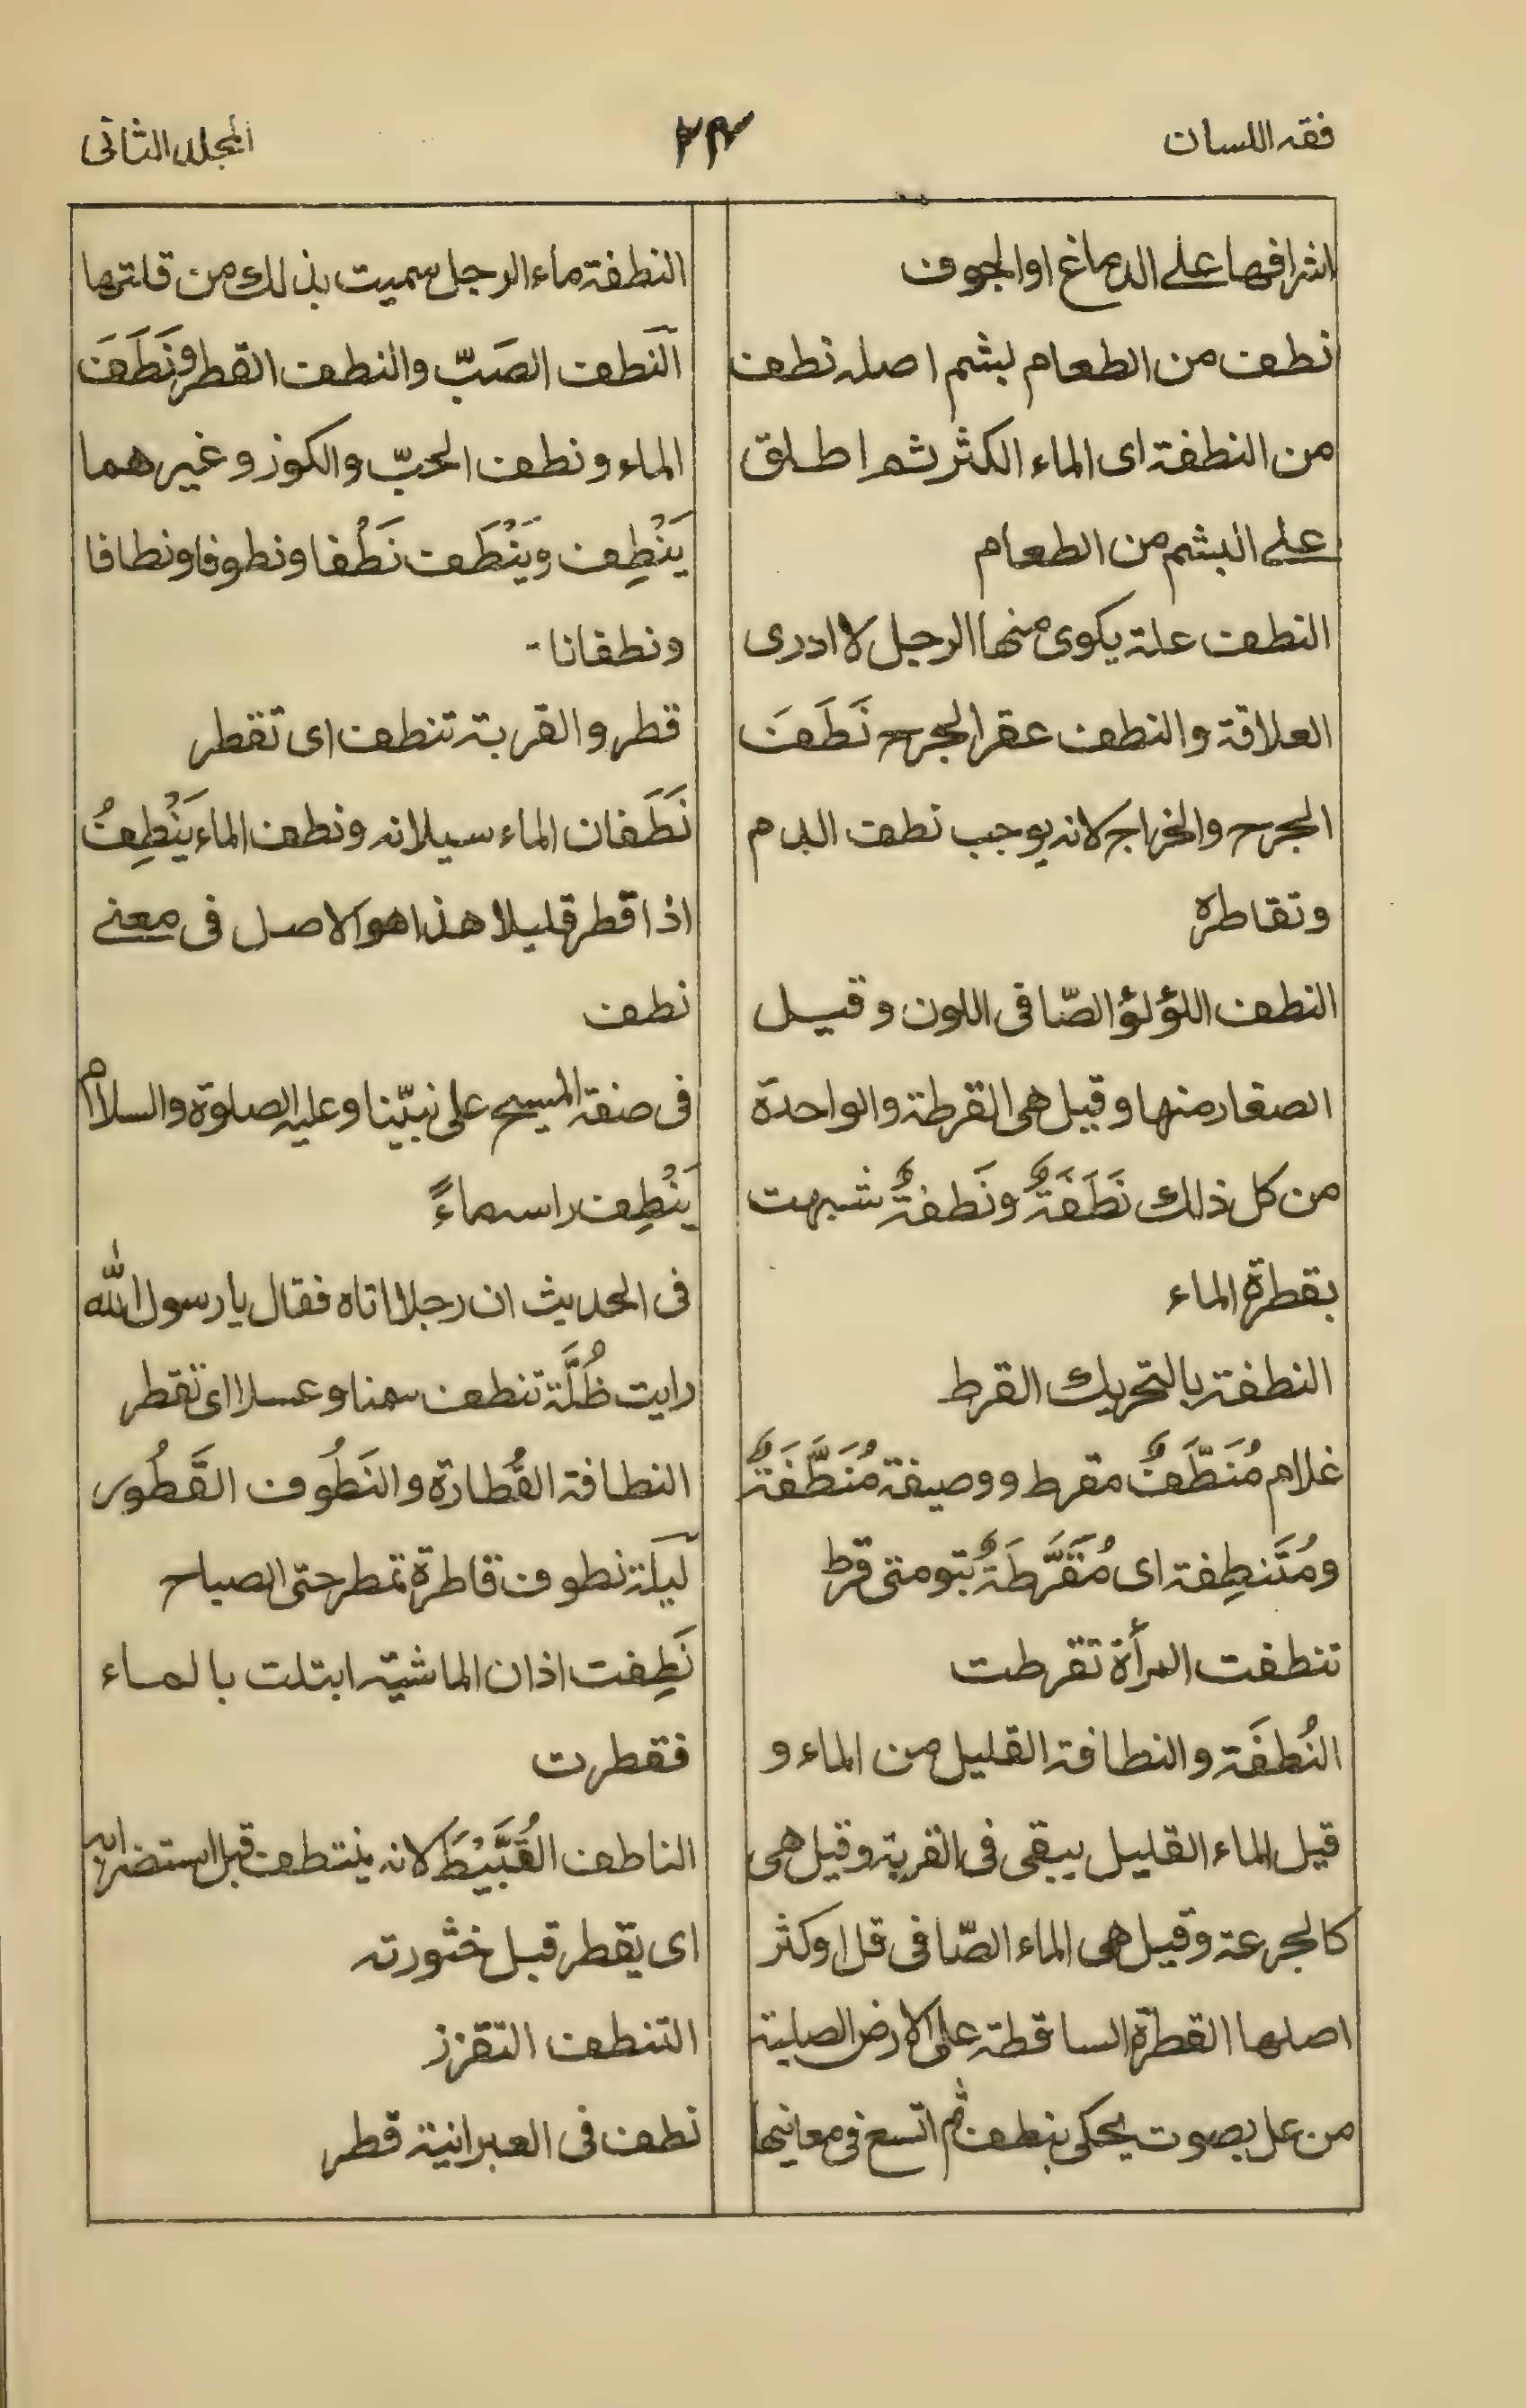 فقه اللسان
٢٣
المجلد الثانی
اشرافها علی الدماغ او الجوف
نطف من الطعام بشم اصله نطف
من النطفة ای الماء الکثر ثم اطلق
علی البشم من الطعام
النطف علة یکوی منها الرجل لا ادری
العلاقة والنطف عقر الجرح نَطَفَ
الجرح والخراج لانه یوجب نطف الدم
وتقاطره
النطف اللؤلؤ الصّافی اللون وقیل
الصغار منها وقیل هی القرطة والواحدة
من کل ذلك نَطَفَةٌ ونَطفةٌ شبهت
بقطرة الماء
النطفة بالتحریك القرط
غلام مُنَطَّفٌ مقرط ووصیفة مُنَطَّفَةٌ
ومُتَنطِفة ای مُقَرَّطَةٌ بتومتی قرط
تنطفت المرأة تقرطت
النُطفَة والنطافة القلیل من الماء و
قیل الماء القلیل یبقی فی القربة وقیل هی
کالجرعة وقیل هی الماء الصّافی قل او کثر
اصلها القطرة الساقطة علی الارض الصلبة
من عل بصوت یحکی بنطف ثم اتسع فی معانیها
النطفة ماء الرجل سمیت بذلك من قلتها
اَلنَطف الصَبّ والنطف القطر ونَطَفَ
الماء ونطف الحبّ والکوز وغیرهما
یَنْطِف ویَنْطَف نَطْفا ونطوفا ونطافا
ونطفانا۔
قطر والقربة تنطف ای تقطر
نَطَفان الماء سیلانه ونطف الماء یَنْطِفُ
اذا قطر قلیلا هذا هو الاصل فی معنے
نطف
فی صفة المسیح علی نبیّنا وعلیه الصلوة والسلام
یَنْطِف راسه ماءً
فی الحدیث ان رجلا اتاه فقال یا رسول الله
رایت ظُلَّة تنطف سمنا وعسلا ای تقطر
النطافة القُطارة والنَطُوف القَطُور
لَیلة نطوف قاطرة تمطر حتی الصباح
نَطِفت اذان الماشیة ابتلت بالماء
فقطرت
الناطف القُبَّیْطَ لانه ینتطف قبل استضرابه
ای یقطر قبل خثورته
التنطف التقزز
نطف فی العبرانیة قطر